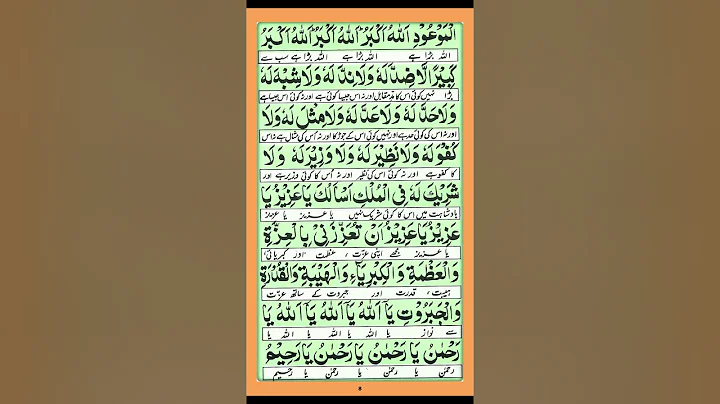 الْمَوْعُوْدِ اَللهُ اَكْبَرُ اَللهُ اَكْبَرُ اَللهُ اَكْبَرُ
اللہ بڑا ہے اللہ بڑا ہے اللہ بڑا ہے سب سے
كَبِيْرًا لَّا ضِدَّ لَهٗ وَلَا نِدَّ لَهٗ وَلَا شِبْهَ لَهٗ
بڑا نہیں کوئی اس کا مد مقابل اور نہ اس جیسا کوئی ہے اور نہ کوئی اس جیسا ہے
وَلَا حَدَّ لَهٗ وَلَا عَدَّ لَهٗ وَلَا مِثْلَ لَهٗ وَلَا
اور نہ اس کی کوئی حد ہے اور نہیں کوئی اس کے جوڑ کا اور نہ اُس کی مثال ہے نہ اس
كُفُوَ لَهٗ وَلَا نَظِيْرَ لَهٗ وَلَا وَزِيْرَ لَهٗ وَلَا
کا کفو ہے اور نہ کوئی اس کی نظیر اور نہ اُس کا کوئی وزیر ہے اور
شَرِيْكَ لَهٗ فِى الْمُلْكِ اَسْاَلُكَ يَا عَزِيْزُ يَا
بادشاہت میں اس کا کوئی شریک نہیں یا عزیز یا عزیز
عَزِيْزُ يَا عَزِيْزُ اَنْ تُعَزِّزَنِىْ بِالْعِزَّةِ
یا عزیز مجھے اپنی عزت ، عظمت اور کبریائی
وَالْعَظْمَةِ وَالْكِبْرِيَآءِ وَالْهَيْبَةِ وَالْقُدْرَةِ
ہیبت ، قدرت اور جبروت کے ساتھ عزت
وَالْجَبَرُوْتِ يَآ اَللهُ يَآ اَللهُ يَآ اَللهُ يَا
سے نواز یا اللہ یا اللہ یا اللہ یا
رَحْمٰنُ يَا رَحْمٰنُ يَا رَحْمٰنُ يَا رَحِيْمُ
رحمٰن یا رحمٰن یا رحمٰن یا رحیم